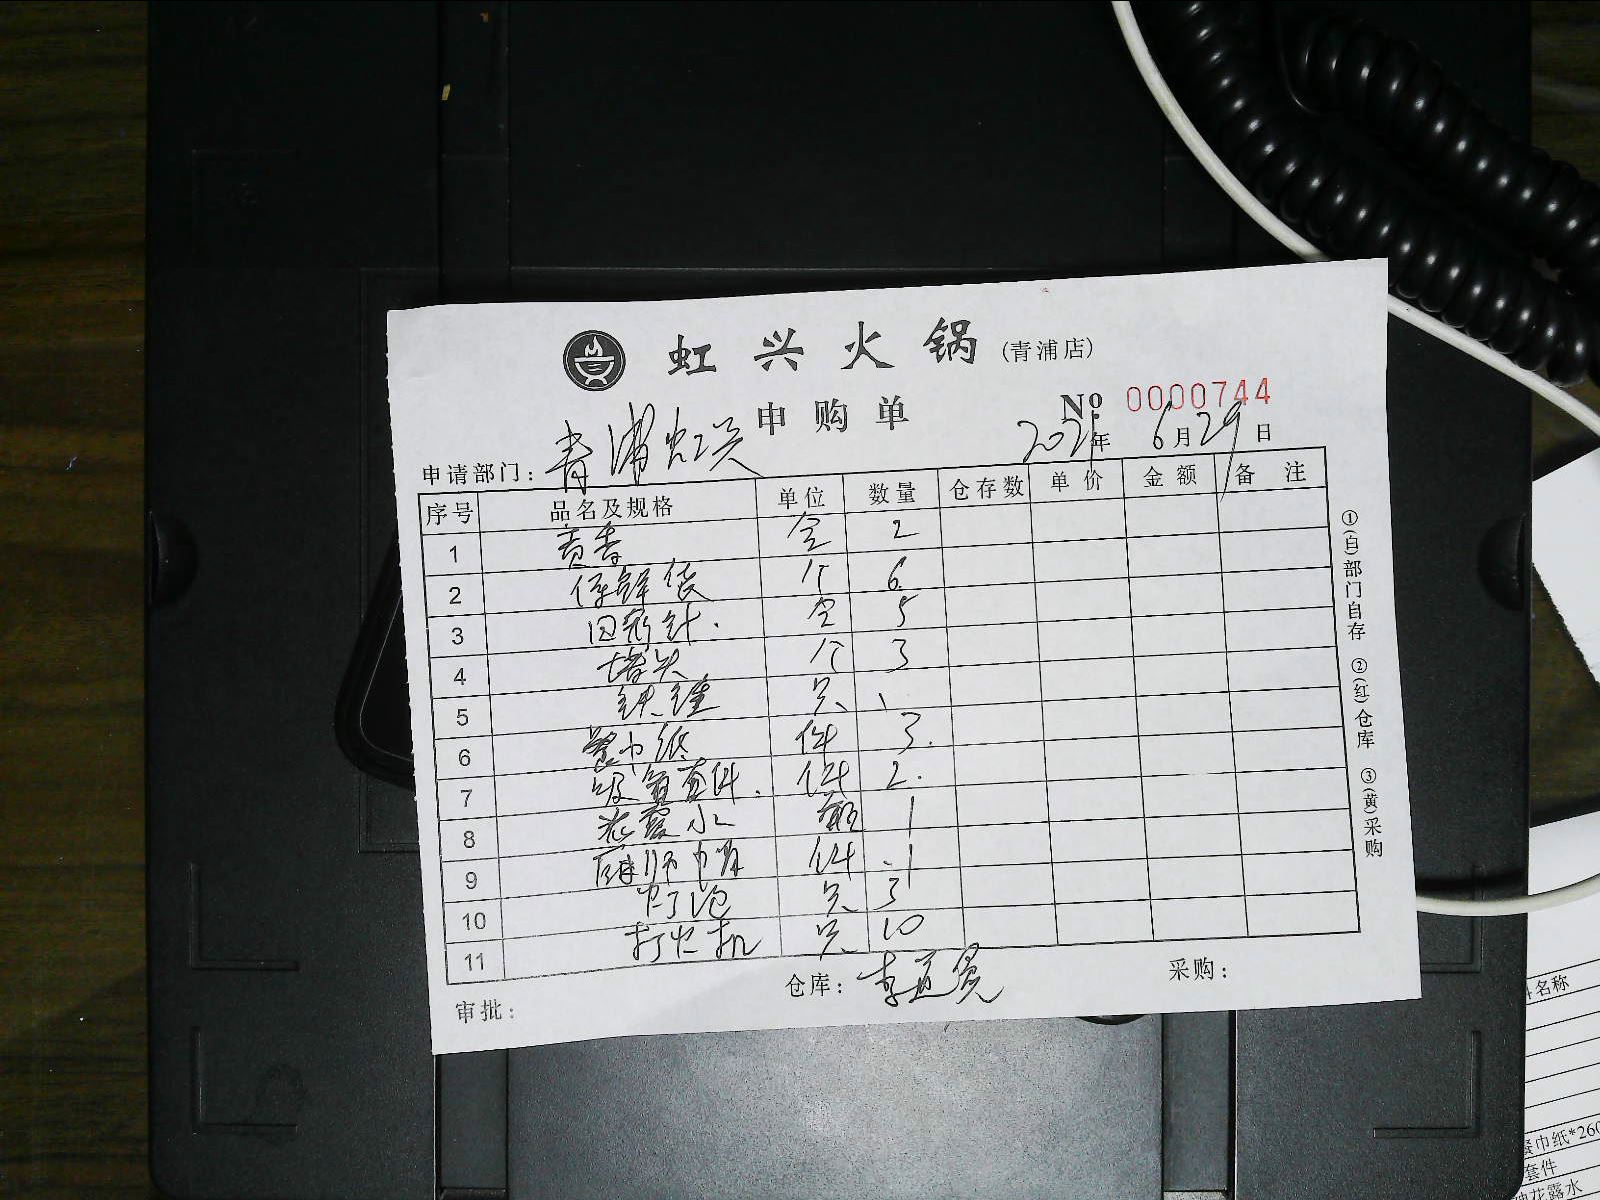 虹兴火锅(青浦店)
申购单
No 0000744
申请部门：青浦虹兴
2021年6月29日
序号 品名及规格 单位 数量 仓存数 单价 金额 备注
1 盒 2
2 保鲜袋 个 6
3 回形针. 合 5
4 堵头 个 3
5 只 、
6 餐巾纸 件 3.
7 套件. 件 2.
8 花露水 瓶 1
9 厨师帽 件 1
10 灯泡 只 3
11 打火机 只 10
审批：
仓库：
采购：
①(白)部门自存 ②(红)仓库 ③(黄)采购
名称
餐巾纸*260
套件
花露水